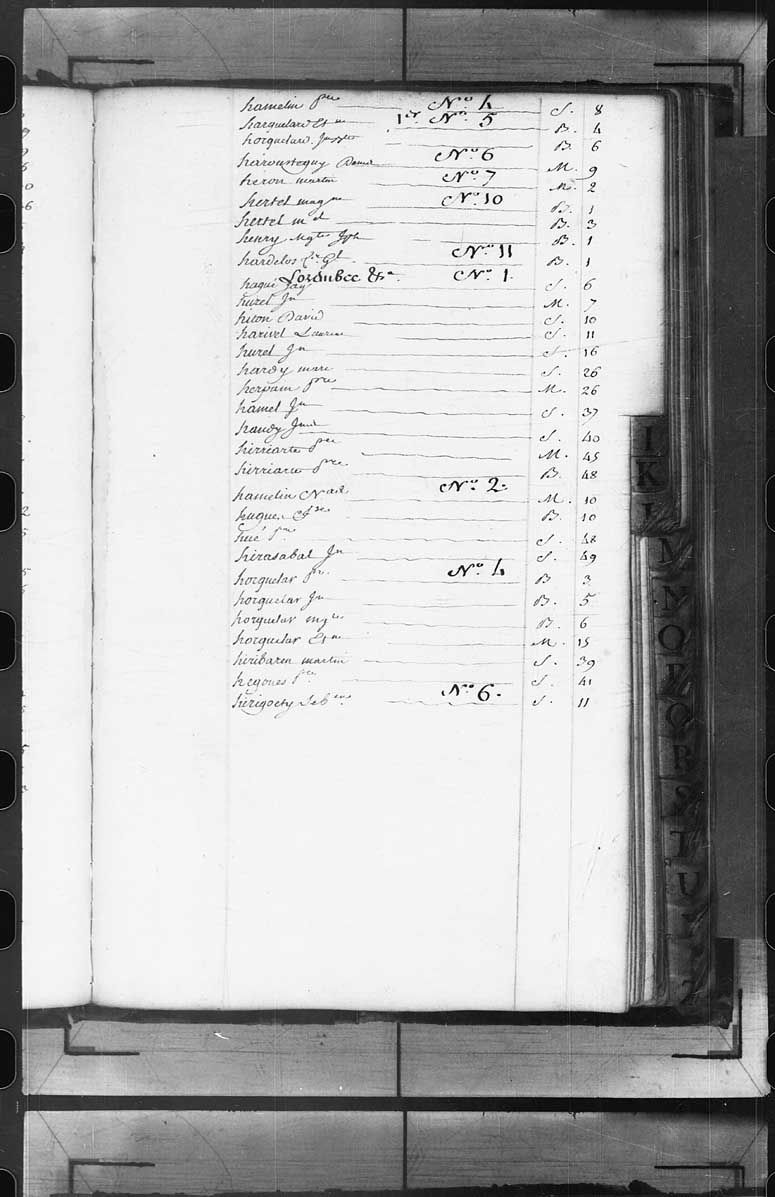 hamelin pre N.o 4 S. 8
harquelard Et.ne 1er N.o 5 B. 4
horquelard B. 6
harousteguy N.o 6 M. 9
heron martin N.o 7 M. 2
hertel mag.ne N.o 10 B. 1
hertel m.el B. 3
henry Mgte Jph B. 1
hardelos N.o 11 B. 1
Lorambec &a. N.o 1.
hagué S. 6
hurel Jn M. 7
hiton David S. 10
harivel Laurent S. 11
hurel Jn S. 16
hardy marc S. 26
herpam pre M. 26
hamel Jn S. 37
handy S. 40
hirriarte pre M. 45
hirriarte pre B. 48
hamelin N.o 2. M. 10
hague B. 10
hué pre S. 48
hirasabal Jn S. 49
horquelar pre N.o 4 B 3
horquelar Jn B. 5
horquelar mgte B. 6
horquelar Et.ne M. 15
hiribaren martin S. 39
hegoues pre S. 41
hirigoity Seb.en N.o 6. S. 11
I
K
L
M
N
O
P
Q
R
S
T
U
Z